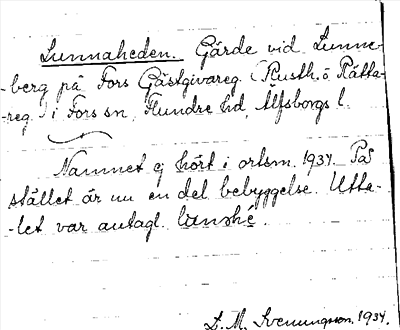 Lunnaheden. Gärde vid Lunne-
-berg på Fors Gästgivareg. (Rusth. o. Rätta-
-reg.) i Fors sn, Flundre hd, Älfsborgs l.
Namnet ej hört i ortsm. 1934. På
stället är nu en del bebyggelse. Utta-
-let var antagl.
D. M. Svenungsson. 1934.